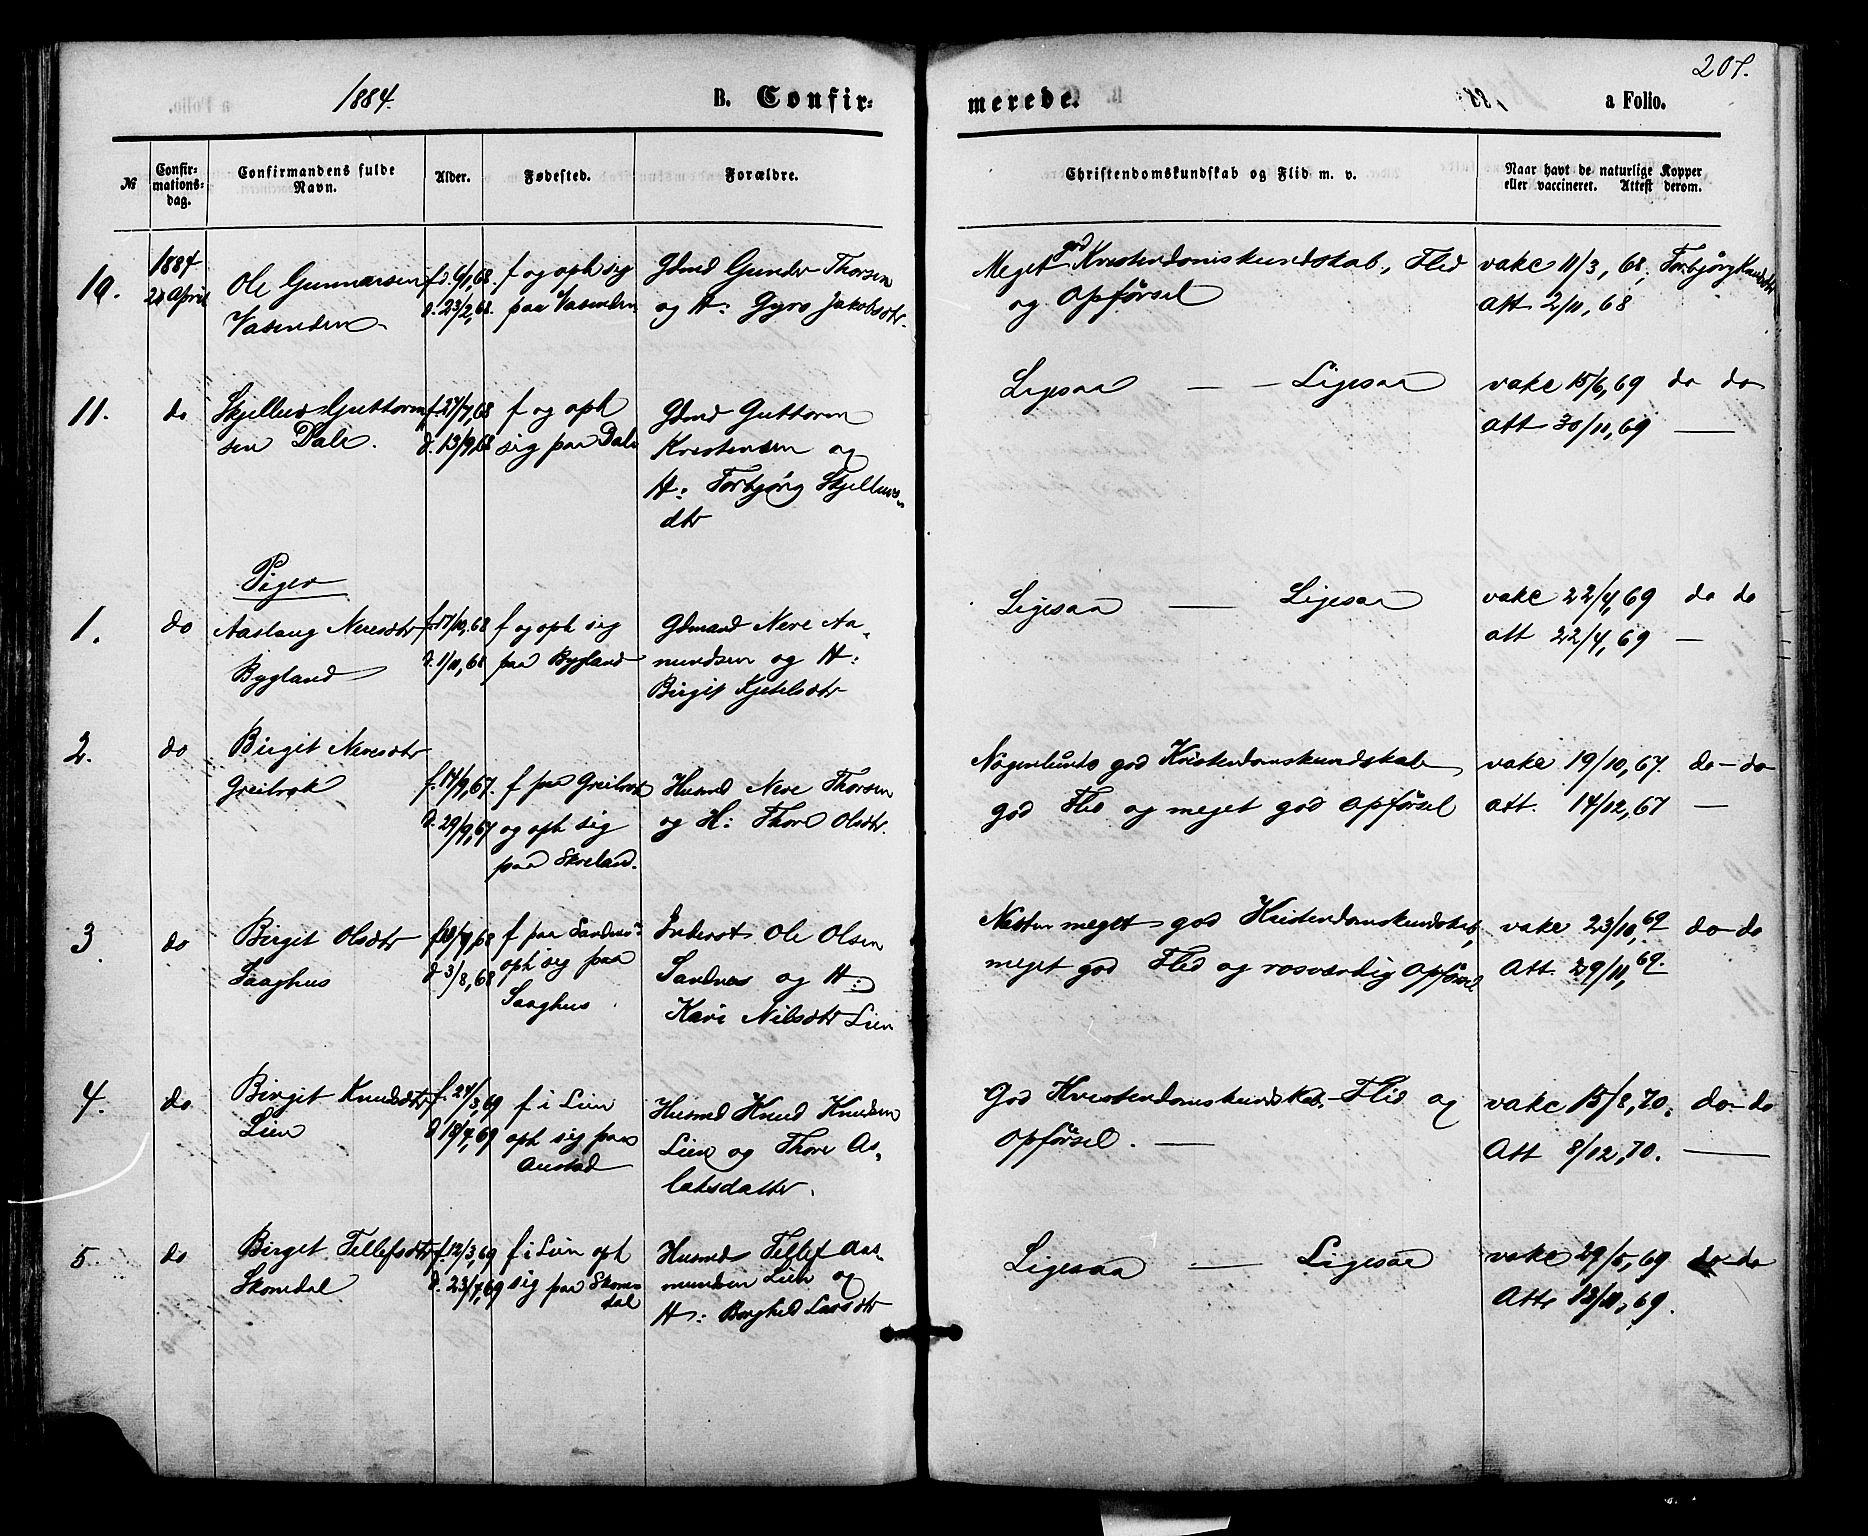 207.
1884.
B. Confir-
merede.
a Folio.
№
Confir-
mations-
dag.
Confirmandens fulde
Navn.
Alder.
Fødested.
Forældre.
Christendomskundskab og Flid m. v.
Naar havt de naturlige Kopper
eller vaccineret. Attest derom.
10.
1884
20 April
Ole Gunnarsen
Vasenden
f. 6/1,68.
d. 23/2,68.
f og oph sig
paa Vasenden
Gdmd Gunder Thorsen
og H: Gyro Jakobsdtr.
Meget god Kristendomskundskab, Flid
og Opførsel
vakc 11/3, 68, Torbjørg Knudsdtr
att 2/11, 68
11.
do
Skjellus Guttorm
sen Dale.
f. 27/7,68
d. 13/9,68
f og oph
sig paa Dale
Gdmd Guttorm
Kristensen og
H: Torbjørg Skjellus-
dtr
Ligesaa — — Ligesaa
vakc 15/6,69 do do
att 30/11,69 —
Piger
1.
do
Aaslaug Neresdtr
Bygland
f. 17/10,68
d. 1/11,68
f og oph sig
paa Bygland
Gdmand Nere Aa-
mundsen og H:
Birgit Kjetelsdtr
Ligesaa — Ligesaa
vakc 22/4,69 do do
att 22/4,69 —
2.
do
Birgit Neresdtr
Greibrok
f. 14/9,67.
d. 29/9,67
f paa Greibrok
og oph sig
paa Skreland.
Husmd Nere Thorsen
og H: Thore Olsdtr.
Nogenlunde god Kristendomskundskab
god Flid og meget god Opførsel
vakc 19/10,67. do — do
att. 14/12,67 —
3
do
Birget Olsdtr
Saaghus
d 3/8,68
f paa Sandnes
oph sig paa
Saaghus
Inderst Ole Olsen
Sandnes og H:
Kari Nilsdtr Lien
Næsten meget god Kristendomskundskab,
meget god Flid og rosværdig Opførsel
vakc 23/10,69 do — do
Att. 29/11,69.
4.
do
Birgit Knudsdtr
Lien
f. 24/3,69
d 18/7,69
f i Lien
oph sig paa
Austad
Husmd Knud Knudsen
Lien og Thore As-
laksdatter.
God Kristendomskundskab, Flid og
Opførsel. —
vakc 15/8,70. do — do
Att 8/12,70. —
5.
do
Birget Tellefsdtr
Skomedal
f. 12/3,69
d. 23/7,69
f i Lien oph
sig paa Skome-
dal
Husmd Tellef Aas-
mundsen Lien og
H: Borghild Larsdtr
Ligesaa — Ligesaa
vakc 29/5,69 do — do
Atte 12/11,69.